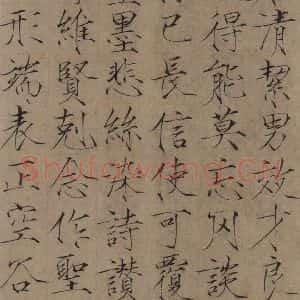 清絜男效才良
得能莫忘罔談
己長信使可覆
墨悲絲染詩讚
維賢剋念作聖
形端表正空谷
Shufawang.CN